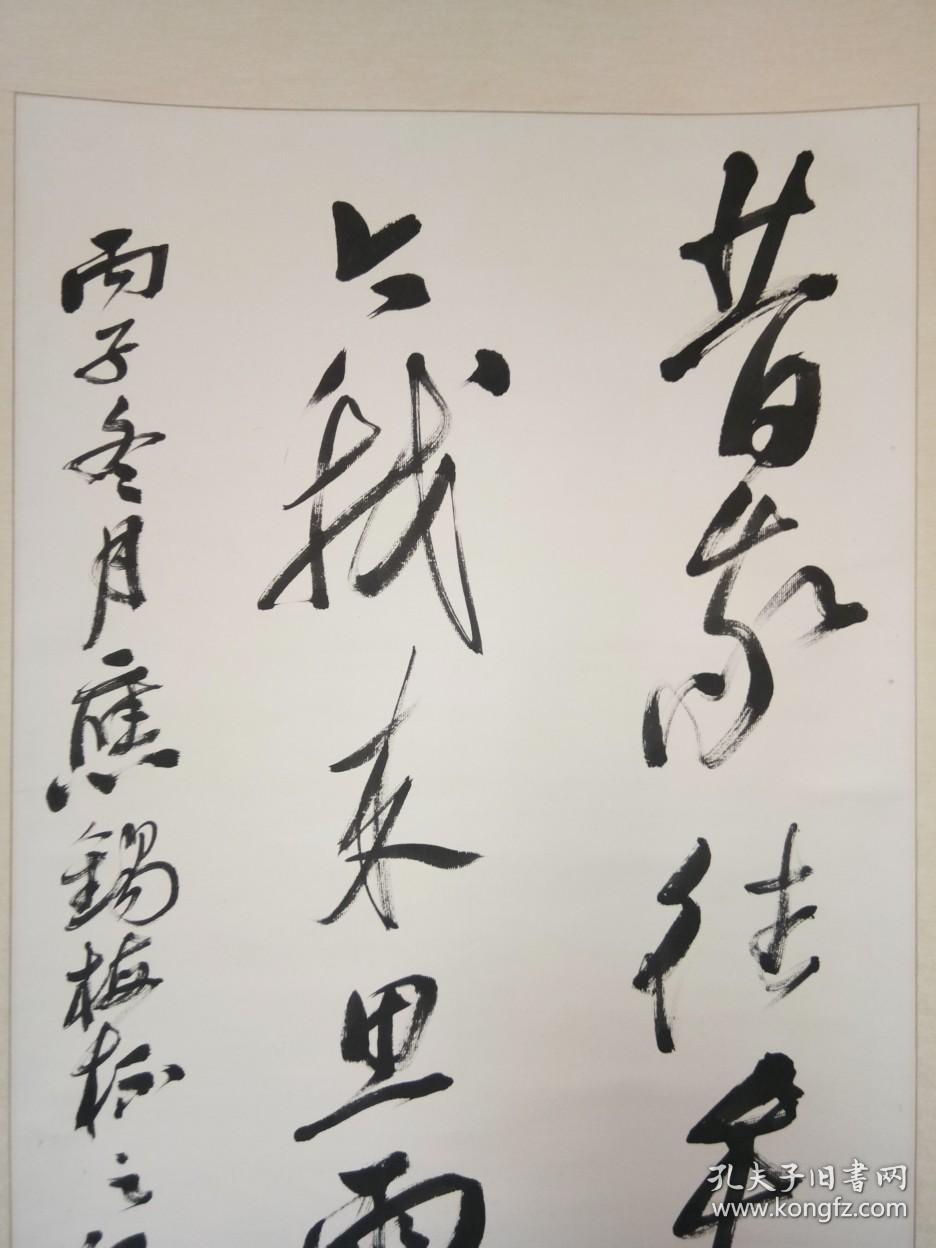 昔我往矣
今我来思雨
丙子冬月應錫梅之
孔夫子旧书网
www.kongfz.com